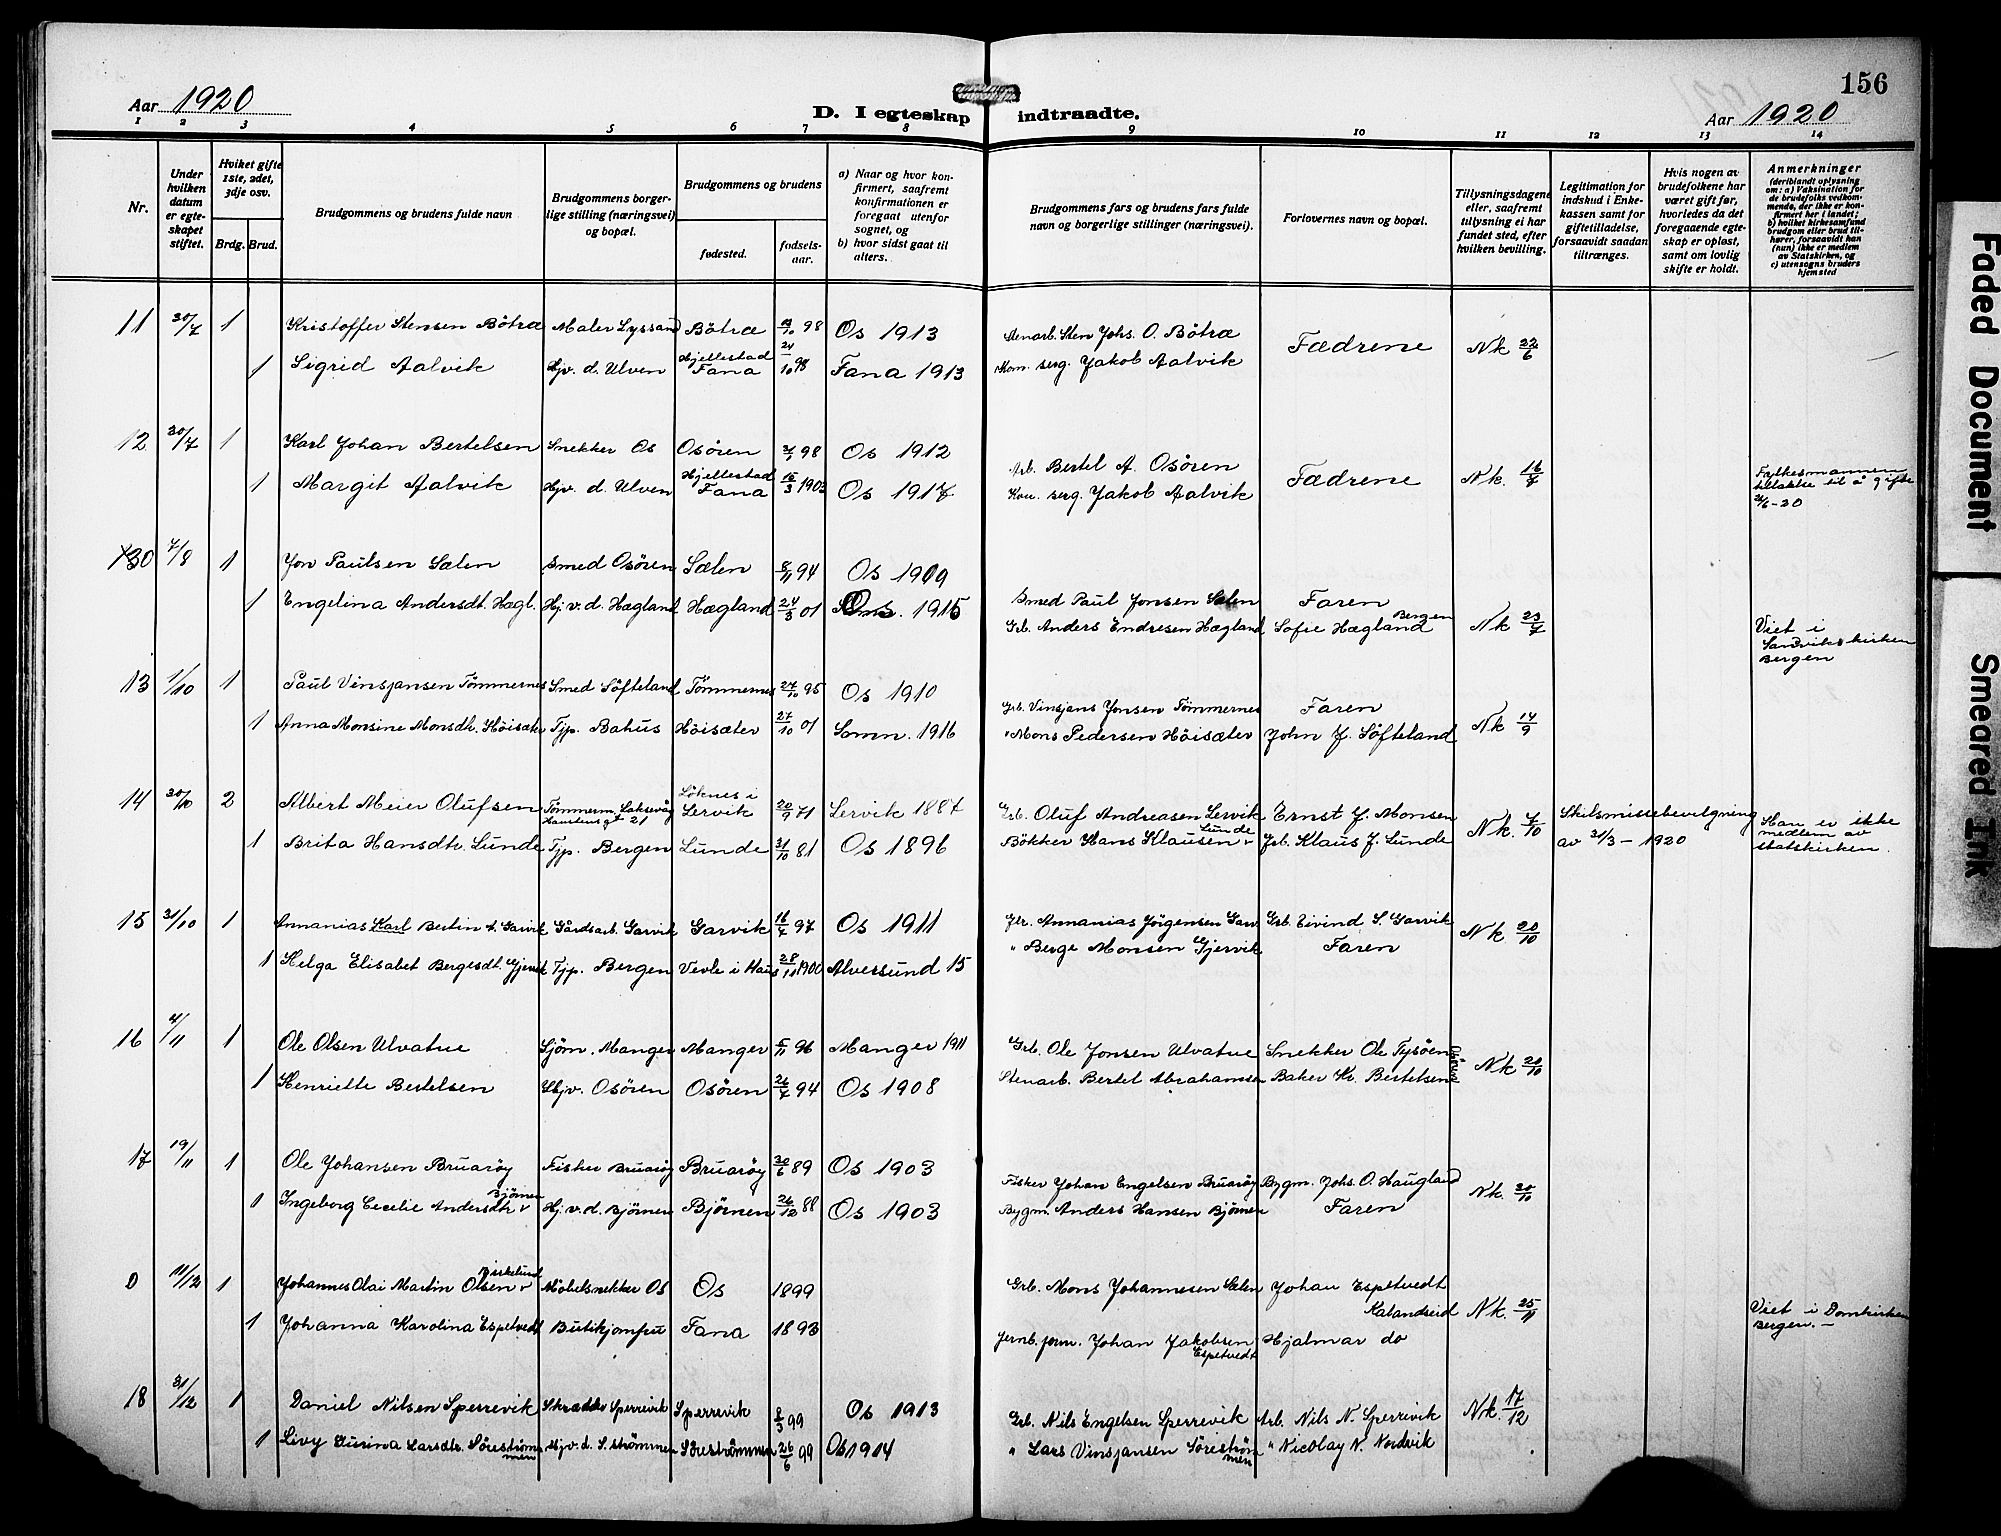 Aar 1920
D. I egteskap indtraadte.
156
Aar 1920
1 2 3 4 5 6 7 8 9 10 11 12 13 14
Nr.
Under hvilken datum er egteskapet stiftet.
Hviket gifte 1ste, 2det, 3dje osv.
Brdg. Brud.
Brudgommens og brudens fulde navn
Brudgommens borgerlige stilling (næringsvei) og bopæl.
Brudgommens og brudens
fødested.
fødselsaar.
a) Naar og hvor konfirmert, saafremt konfirmationen er foregaat utenfor sognet, og
b) hvor sidst gaat til alters.
Brudgommens fars og brudens fars fulde navn og borgerlige stillinger (næringsvei).
Forlovernes navn og bopæl.
Tillysningsdagene eller, saafremt tillysning ei har fundet sted, efter hvilken bevilling.
Legitimation for indskud i Enkekassen samt for giftetilladelse, forsaavidt saadan tiltrænges.
Hvis nogen av brudefolkene har været gift før, hvorledes da det foregaaende egteskap er opløst, samt om lovlig skifte er holdt.
Anmerkninger
(deriblandt oplysning om: a) Vaksination for de brudefolks vedkommende, der ikke er konfirmert her i landet; b) hvilket kirkesamfund brudgom eller brud tilhører, forsaavidt han (hun) ikke er medlem av Statskirken, og c) utensogns bruders hjemsted
11 30/7 1 Kristoffer Stensen Bötræ Maler Lyssand Bötræ 98 Os 1913 Stenarb. Sten Johs. O. Bötræ Fædrene Nk 22/6
1 Sigrid Aalvik Hjv. d. Ulven Hjellestad Fana 24/10 98 Fana 1913 Kom. serg. Jakob Aalvik
12 30/7 1 Karl Johan Bertelsen Snekker Os Osören 98 Os 1912 Arb. Bertel A. Osören Fædrene Nk. 16/7
1 Margit Aalvik Hjv. d. Ulven Hjellestad Fana 16/3 1903 Os 1917 Kom. serg. Jakob Aalvik Fylkesmannen tillatelse til å gifte 21/6-20
0 7/8 1 Jon Paulsen Sælen Smed Osören Sælen 8/11 94 Os 1909 Smed Paul Jonsen Sælen Faren
1 Engelina Andersdt. Hægl. Hjv. d. Hægland Hægland 24/3 01 Os. 1915 Grb. Anders Endresen Hægland Sofie Hægland Bergen Nk 23/7 Viet i Sandvikskirken Bergen
13 1/10 1 Paul Vinsjansen Tömmernes Smed Söfteland Tömmernes 27/10 95 Os 1910 Grb. Vinsjans Jonsen Tömmernes Faren Nk 14/9
1 Anna Monsine Monsdt. Höisæter Tjp. Bahus Höisæter 27/10 01 Somn. 1916 " Mons Pedersen Höisæter John J. Söfteland
14 30/10 2 Albert Meier Olufsen Tömmerm. Laksevåg 21 Löknes i Lervik 20/9 71 Lervik 1887 Grb. Oluf Andreasen Lervik Ernst J. Monsen Nk. 7/10 Skilsmissebevilgning av 31/3 - 1920 Han er ikke medlem av statskirken.
1 Brita Hansdt. Lunde Tjp. Bergen Lunde 31/10 81 Os 1896 Bökker Hans Klausen Lunde Grb. Klaus J. Lunde
15 31/10 1 Annanias Karl Bertin A. Garvik Gårdsarb. Garvik Garvik 16/7 97 Os 1911 Annanias Jörgensen Garv. Grb. Eivind S. Garvik Nk 20/10
1 Helga Elisabet Bergesdt. Gjervik Tjp. Bergen Vevle i Haus 28/11 1900 Alversund 15 " Berge Monsen Gjervik Faren
16 4/11 1 Ole Olsen Ulvatne Sjöm. Manger Manger 5/11 96 Manger 1911 Grb. Ole Jonsen Ulvatne Snekker Ole Tysöen Nk 20/10
1 Henriette Bertelsen Hjv. Osören Osören 26/7 94 Os 1908 Stenarb. Bertel Abrahamsen Baker Kr. Bertelsen Osören
17 19/11 1 Ole Johansen Bruaröy Fisker Bruaröy Bruaröy 30/6 89 Os 1903 Fisker Johan Engelsen Bruaröy Bygm. Johs. O. Haugland Nk. 30/10
1 Ingeborg Cecelie Andersdtr Björnen Hj. v. d. Björnen Björnen 26/12 88 Os 1903 Bygm. Anders Hansen Björnen Faren
0 11/12 1 Johannes Olai Martin Olsen Birkelund Möbelsnekker Os Os 1899 Grb. Mons Johannesen Sælen Johan Espetvedt Kalandseid Nk. 25/11 Viet i Domkirken Bergen. -
1 Johanna Karolina Espetvedt Butikjomfru Fana 1893 Jernb. form. Johan Jakobsen Espetvedt Hjalmar do
18 31/12 1 Daniel Nilsen Sperrevik Skrædder Sperrevik Sperrevik 8/3 99 Os 1913 Grb. Nils Engelsen Sperrevik Arb. Nils N. Sperrevik Nk. 17/12
1 Livy Larsdtr. Söreströmmen Hj. v. d. S. strömmen Söreströmmen 26/6 99 Os 1914 " Lars Vinsjansen Söreströmmen " Nicolay N. Nordvik
Faded Document
Smeared Ink